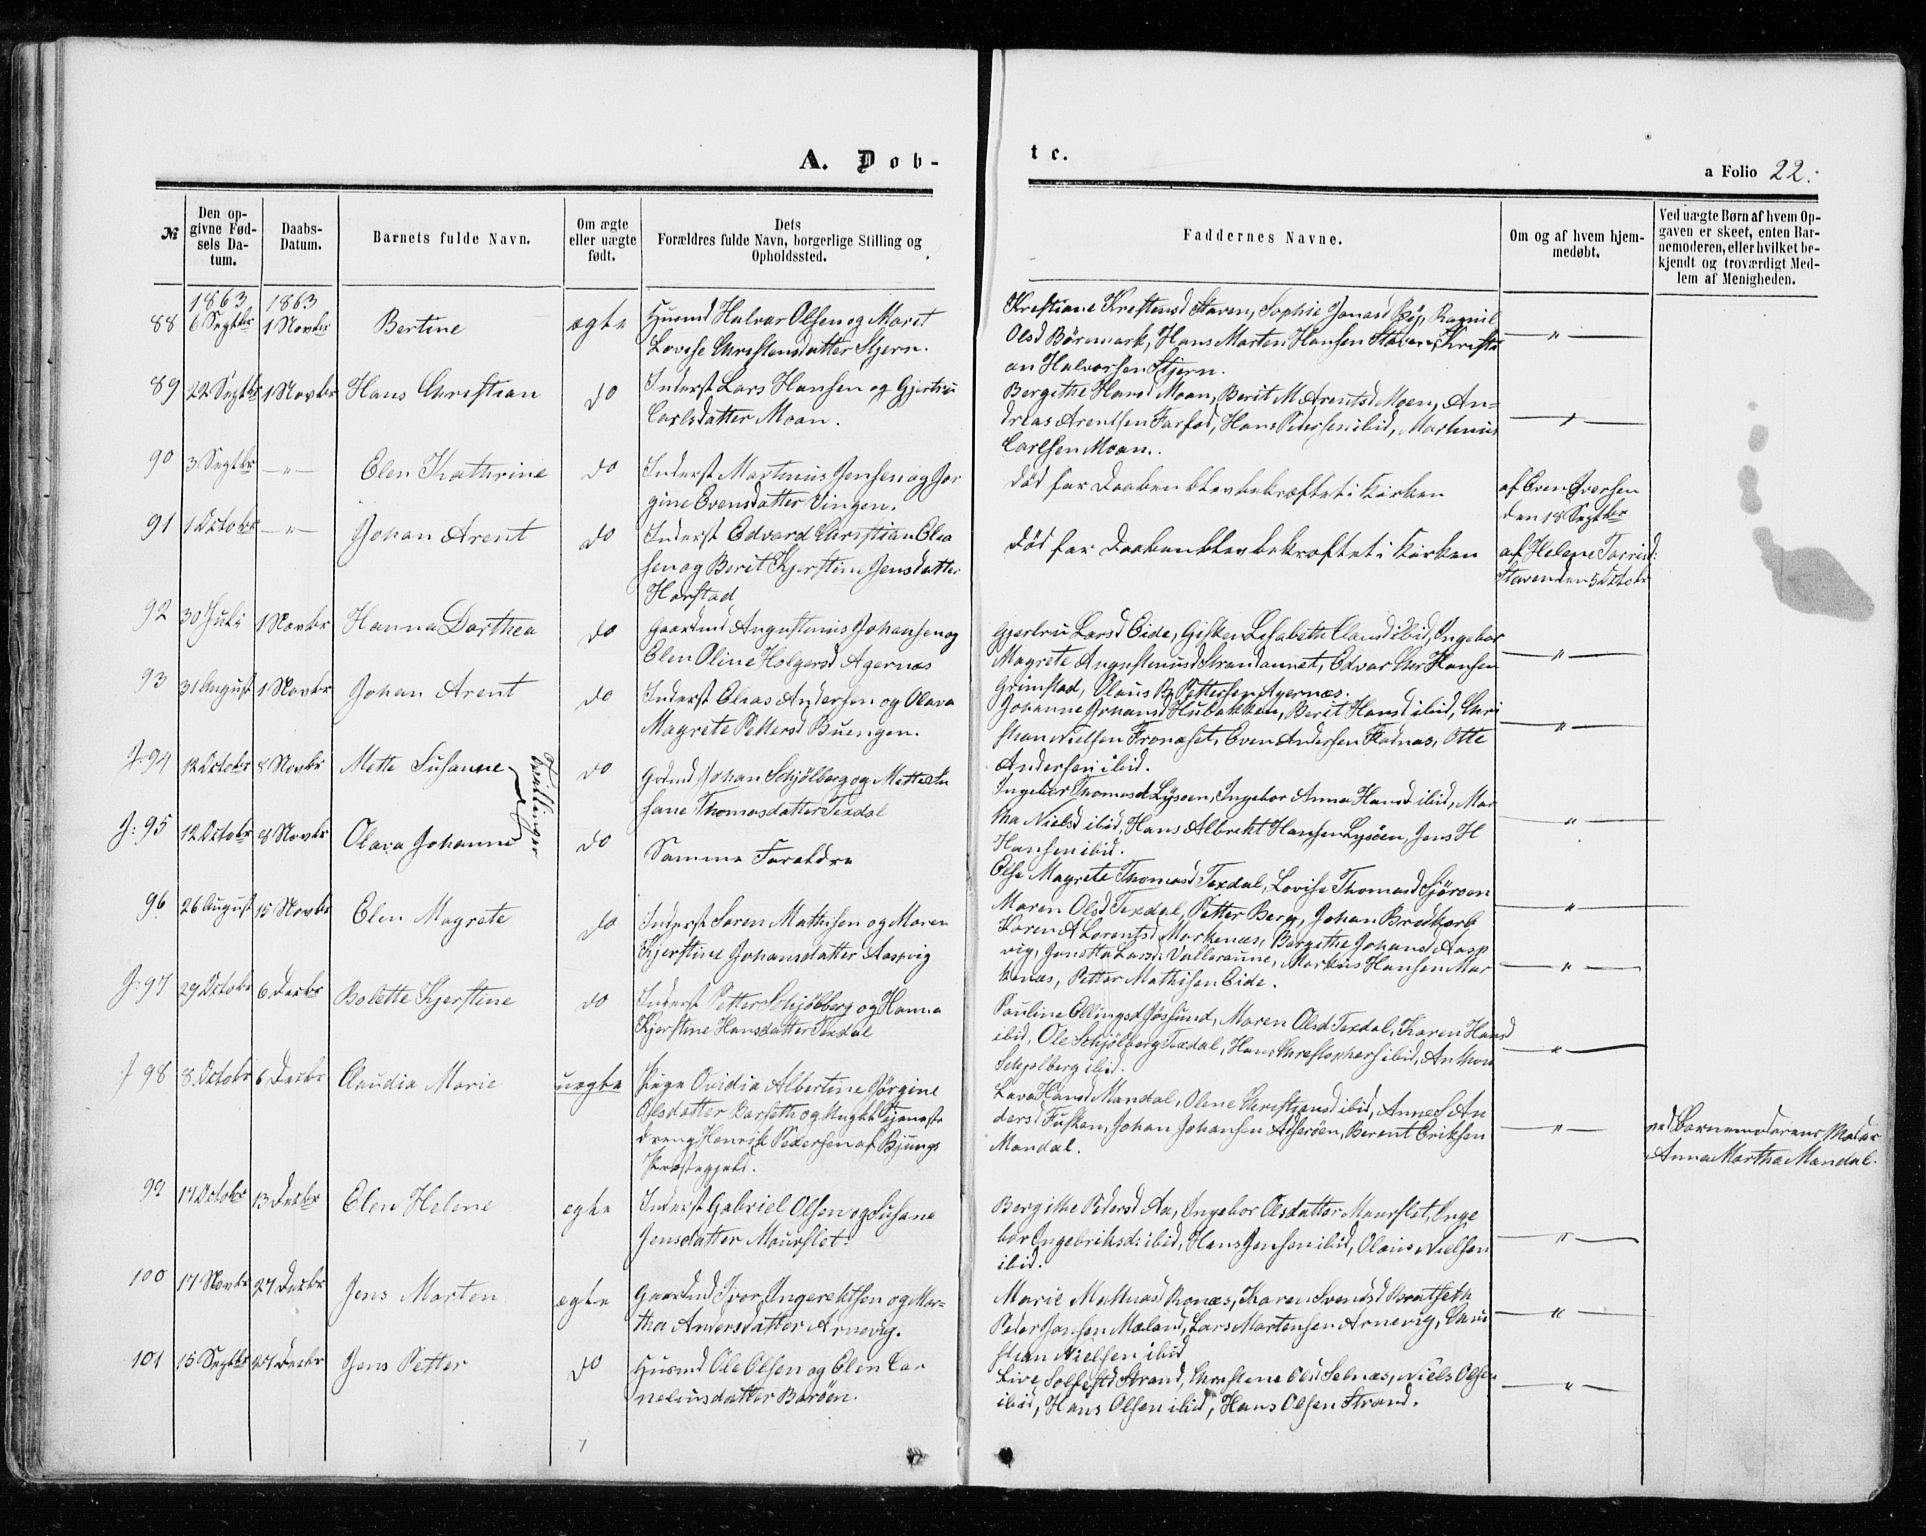 A. Døb-
te.
a Folio 22.
№
Den op-
givne Fød-
sels Da-
tum.
Daabs-
Datum.
Barnets fulde Navn.
Om ægte
eller uægte
født.
Dets
Forældres fulde Navn, borgerlige Stilling og
Opholdssted.
Faddernes Navne.
Om og af hvem hjem-
medøbt.
Ved uægte Børn af hvem Op-
gaven er skeet, enten Bar-
nemoderen, eller hvilket be-
kjendt og troværdigt Med-
lem af Menigheden.
1863 1863
88 6 Septbr 1 Novbr Bertine ægte Husmd Halvor Olsen og Marit
Lovise Christensdatter Stjern.
Krestiane Krestensd Staven, Sophie Jonasd Bøj, Ragnil
Olsd Børemark, Hans Morten Hansen Staven, Kristi
an Halvorsen Stjern. — " —
89 22 Septbr 1 Novbr Hans Christian do Inderst Lars Hansen og Gjertru
Carlsdatter Moan.
Bergithe Hansd Moan, Berit M Arentsd Moen, An-
dreas Arentsen Farfod, Hans Pedersen ibid, Martinus
Carlsen Moan. — " —
90 3 Septbr — " — Elen Kathrine do Inderst Martinus Jensen og Jor
gine Evensdatter Vingen.
Død før Daaben blev bekræftet i Kirken
af Even Iversen
den 18 Septbr
91 1 Octobr — " — Johan Arent do Inderst Edvard Christian Elia
sen og Berit Kjerstine Jensdatter
Harstad
Død før Daaben blev bekræftet i Kirken
af Helene Torrisd:
Staven den 5 Octobr
92 30 Juli 1 Novbr Hanna Dorthea do Gaardmd Augustinus Johansen og
Elen Oline Holgersd Agernæs
Gjertru Larsd Eide, Gisken Lisabeth Elansd ibid, Ingebor
Magrete Augustinusd Strandannet, Edvar Chr Hansen
Grimstad, Olaus B Pettersen Agernæs. — " —
93 31 August 1 Novbr Johan Arent do Inderst Elias Andersen og Olava
Magrete Pettersd Buengen.
Johanne Johansd Hubakken, Berit Hansd ibid, Chri
stian Nielsen Fronæset, Even Andersen Fladnæs, Otte
Andersen ibid. — " —
J: 94 12 Octobr 8 Novbr Mette Susanne do Grdmd Johan Schjølberg og Mette Su
sane Thomasdatter Texdal
Tvillinger
Ingebor Thomasd Lysøen, Ingebor Anna Hansd ibid, Mar
tha Nielsd ibid, Hans Albrekt Hansen Lysøen, Jens H
Hansen ibid. — " —
J: 95 12 Octobr 8 Novbr Olava Johanne do Samme Forældre
Else Magrete Thomasd Texdal, Lovise Thomasd Sjørsen
Maren Olsd Texdal, Petter Berg, Johan Brodkorb — " —
96 26 August 15 Novbr Elen Magrete do Inderst Søren Mathisen og Maren
Kjerstine Johansdatter Aasvig
Karen A Lorentsd Markenæs, Bergithe Johansd Aasp
vig, Jonetta Larsd: Vallersunne, Markus Hansen Mar
kenæs, Petter Mathisen Eide. — " —
J: 97 29 Octobr 6 Decbr Bolette Kjerstine do Inderst Petter Schjølberg og Hanna
Kjerstine Hansdatter Texdal
Pauline Ellingsd Jøssund, Maren Olsd Texdal, Karen Hansd
ibid, Ole Schjølberg Texdal, Hans Christophers ibid, Anthon
Schjølberg ibid. — " —
J 98 8 Octobr 6 Decbr Claudia Marie uægte Pige Ovidia Albertine Jørgine
Olsdatter Barseth og Ungkl Tjeneste
dreng Henrik Pedersen af Bjungs
Præstegjeld.
Lava Hansd Mandal, Olene Christiansd ibid, Anne S An
dersd Fusken, Johan Johansen Asserøen, Berent Eriksen
Mandal. — " —
ved Barnemoderens Moder
Anna Martha Mandal.
99 17 Octobr 13 Decbr Elen Helene ægte Inderst Gabriel Olsen og Susana
Jensdatter Mourslet.
Bergithe Pedersd Aa, Ingebor Olsdatter Mourslet, Inge
bor Ingebriksd: ibid, Hans Jensen ibid, Olaus Nielsen
ibid. — " —
100 17 Novbr 27 Decbr Jens Morten ægte Gaardmd Iver Ingerektsen og Mar-
tha Andersdatter Arnevig.
Marie Mathiasd Ronæs, Karen Svendsd Brentseth
Peder Jansen Mæland, Lars Mortensen Arnevig, Chri
stian Nielsen ibid — " —
101 15 Septbr 27 Decbr Jens Petter do Husmd Ole Olsen og Elen Cor
neliusdatter Barøen.
Live Solfestd Strand, Christene Olsd Selnæs, Niels Olsen
ibid, Hans Olsen ibid, Hans Olsen Strand. — " —